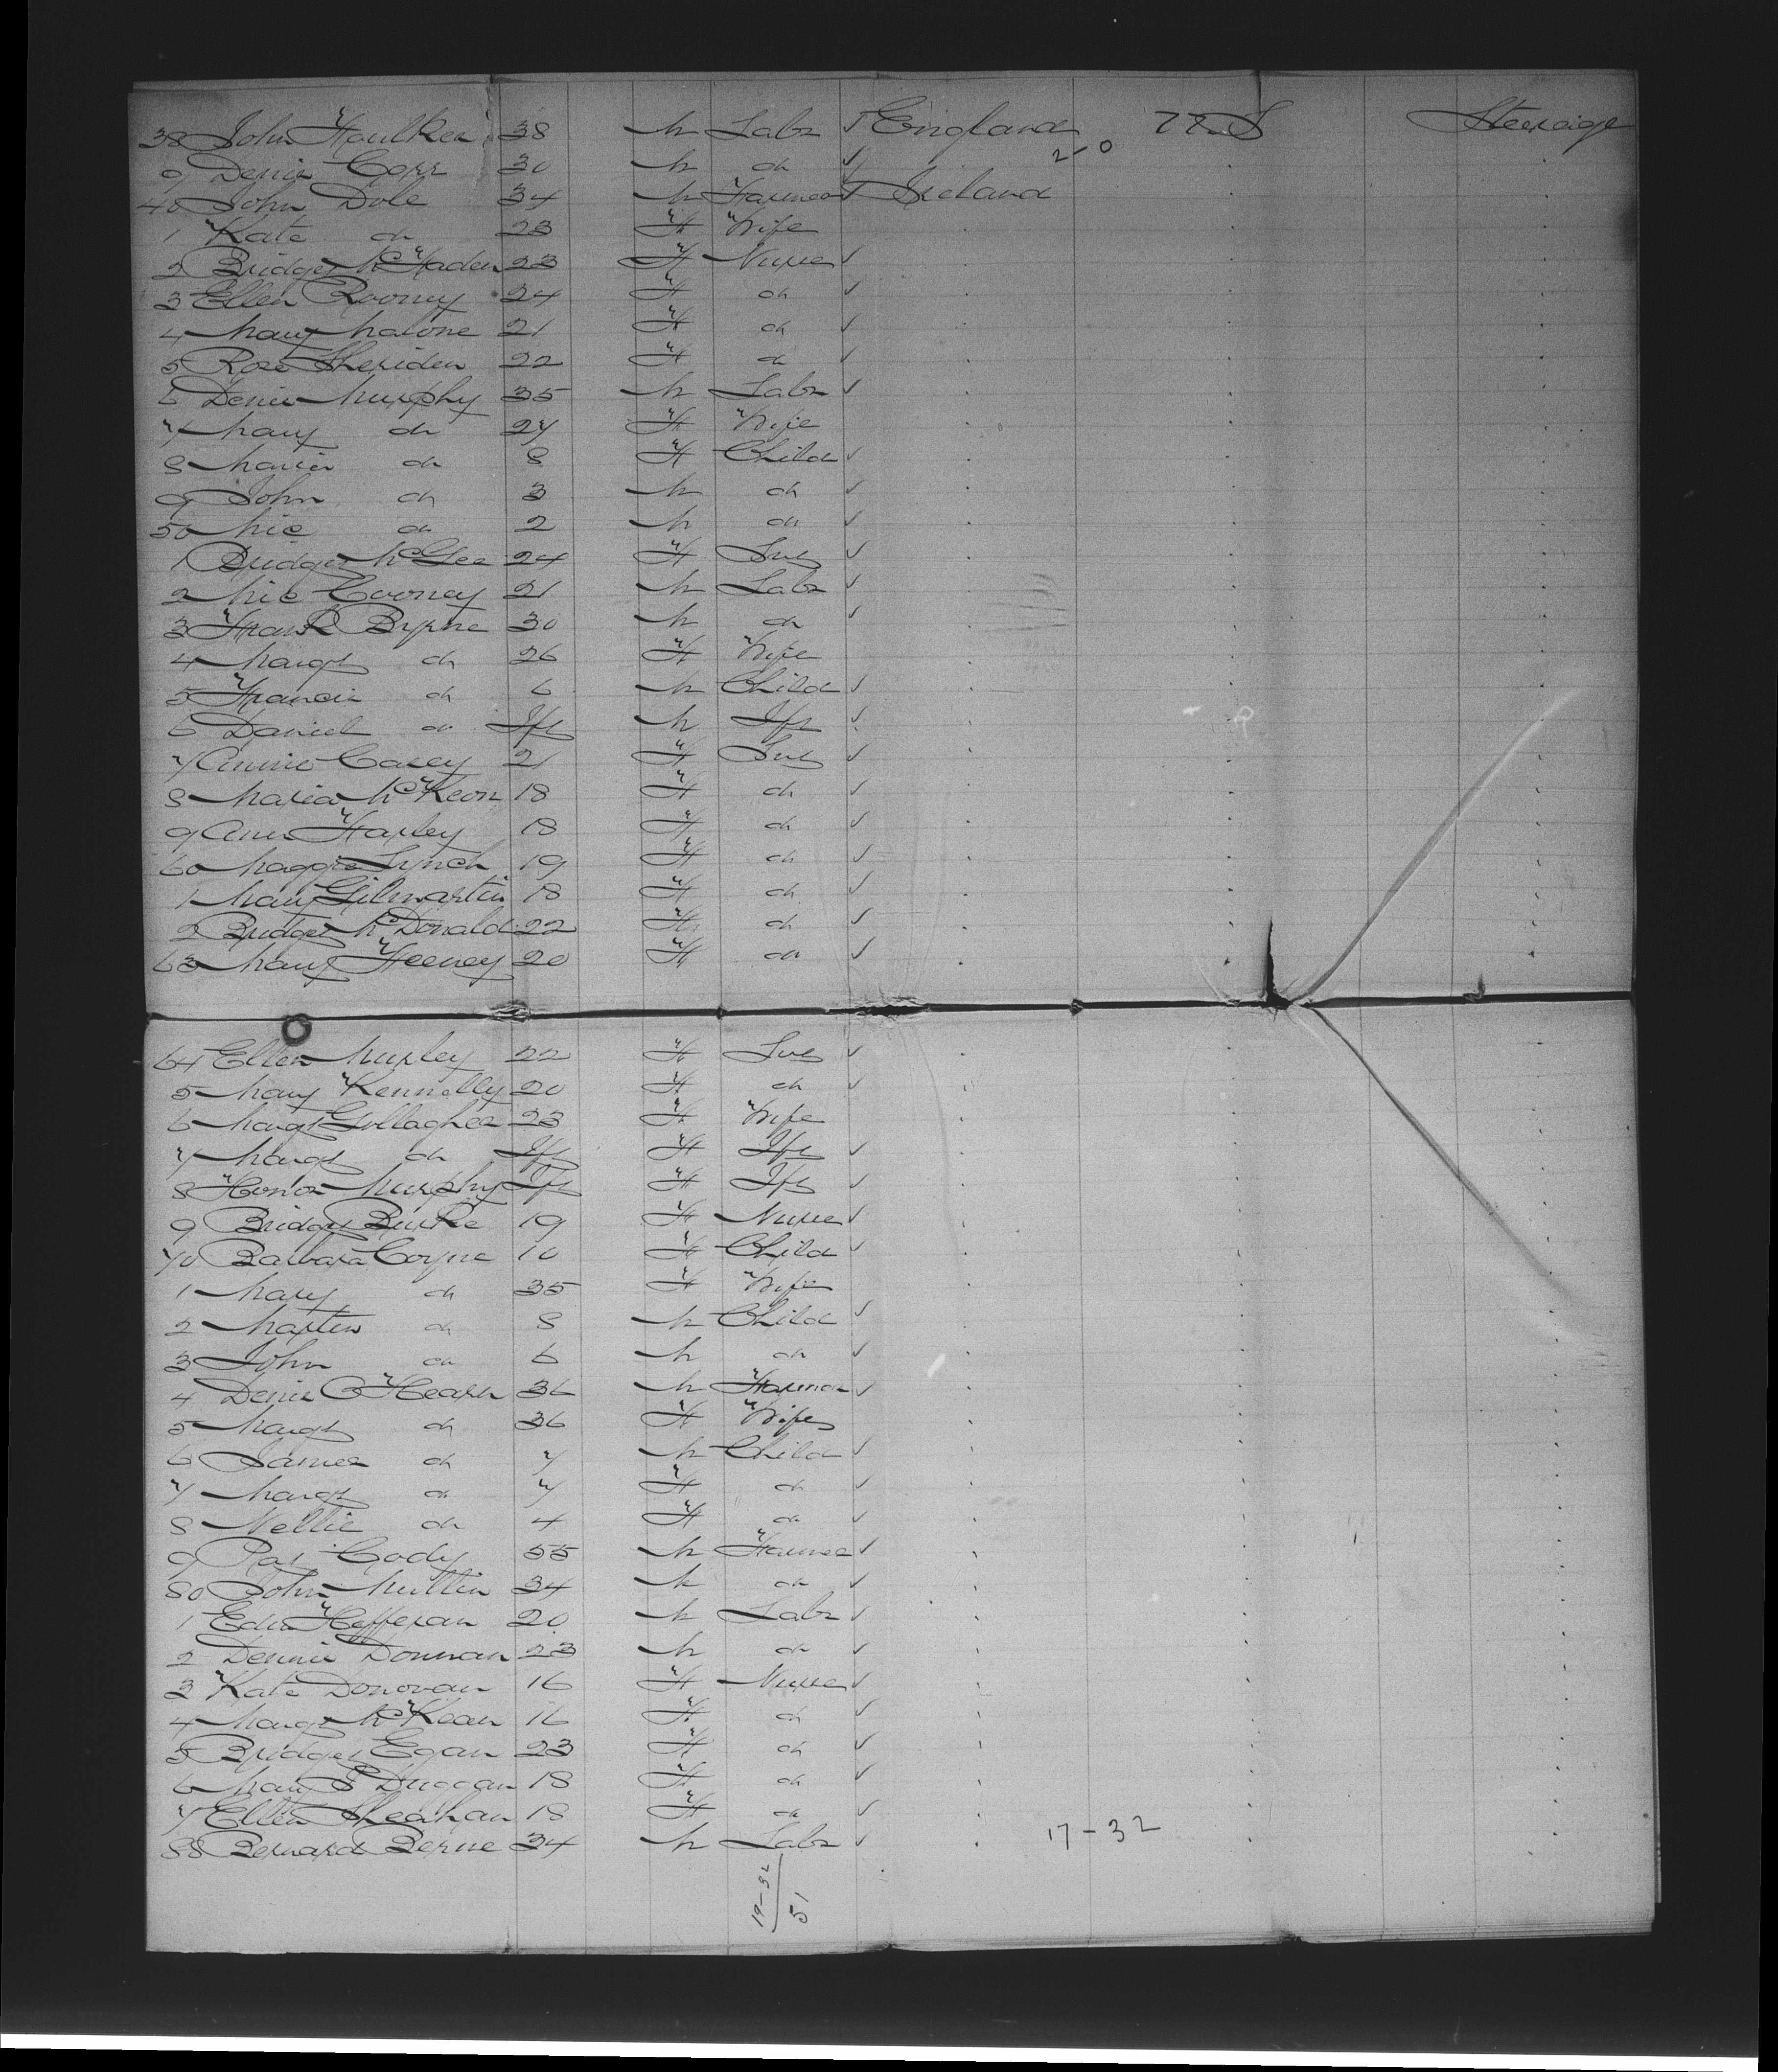 38 John Faulkner 38 M Labr ✓ England U.S Steerage
9 Denis Corr 30 M do ✓ 2-0
40 John Dole 34 M Farmer ✓ Ireland
1 Kate do 23 F Wife
2 Bridget McFaden 23 F Nurse ✓
3 Ellen Rooney 24 F do ✓
4 Mary Malone 21 F do ✓
5 Rose Sheriden 22 F do ✓
6 Denis Murphy 35 M Labr ✓
7 Mary do 27 F Wife
8 Maria do 8 F Child ✓
9 John do 3 M do ✓
50 Mic do 2 M do ✓
1 Bridget McGee 24 F Svt ✓
2 Mic Cooney 21 M Labr ✓
3 Frank Byrne 30 M do ✓
4 Margt do 26 F Wife
5 Francis do 6 M Child ✓
6 Daniel do Ift M Ift ✓
7 Annie Casey 21 F Svt ✓
8 Maria McKeon 18 F do ✓
9 Ann Harley 18 F do ✓
60 Maggie Lynch 19 F do ✓
1 Mary Gilmartin 18 F do ✓
2 Bridget McDonald 22 F do ✓
63 Mary Feeney 20 F do ✓
64 Ellen Murley 22 F Svt ✓
5 Mary Kennelly 20 F do ✓
6 Margt Gollagher 23 F Wife
7 Margt do Ift F Ift ✓
8 Honor Murphy Ift F Ift ✓
9 Bridget Burke 19 F Nurse ✓
70 Barbara Coyne 10 F Child ✓
1 Mary do 35 F Wife
2 Martin do 8 M Child ✓
3 John do 6 M do ✓
4 Denis O'Hearn 36 M Farmer ✓
5 Margt do 36 F Wife
6 James do 7 M Child ✓
7 Margt do 7 F do ✓
8 Nellie do 4 F do ✓
9 Pat Cody 55 M Farmer ✓
80 John Mullin 34 M do ✓
1 Edw Hefferan 20 M Labr ✓
2 Dennis Donnan 23 M do ✓
3 Kate Donovan 16 F Nurse ✓
4 Margt McKean 16 F do ✓
5 Bridget Egan 23 F do ✓
6 Mary S Duggan 18 F do ✓
7 Ellen Sheahan 18 F do ✓
88 Bernard Berne 34 M Labr ✓ 17-32
19-32
51